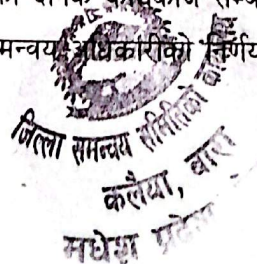 समन्वय अधिकारीको निर्णय
जिल्ला समन्वय समितिको
कलैया, बारा
मधेश प्रदेश